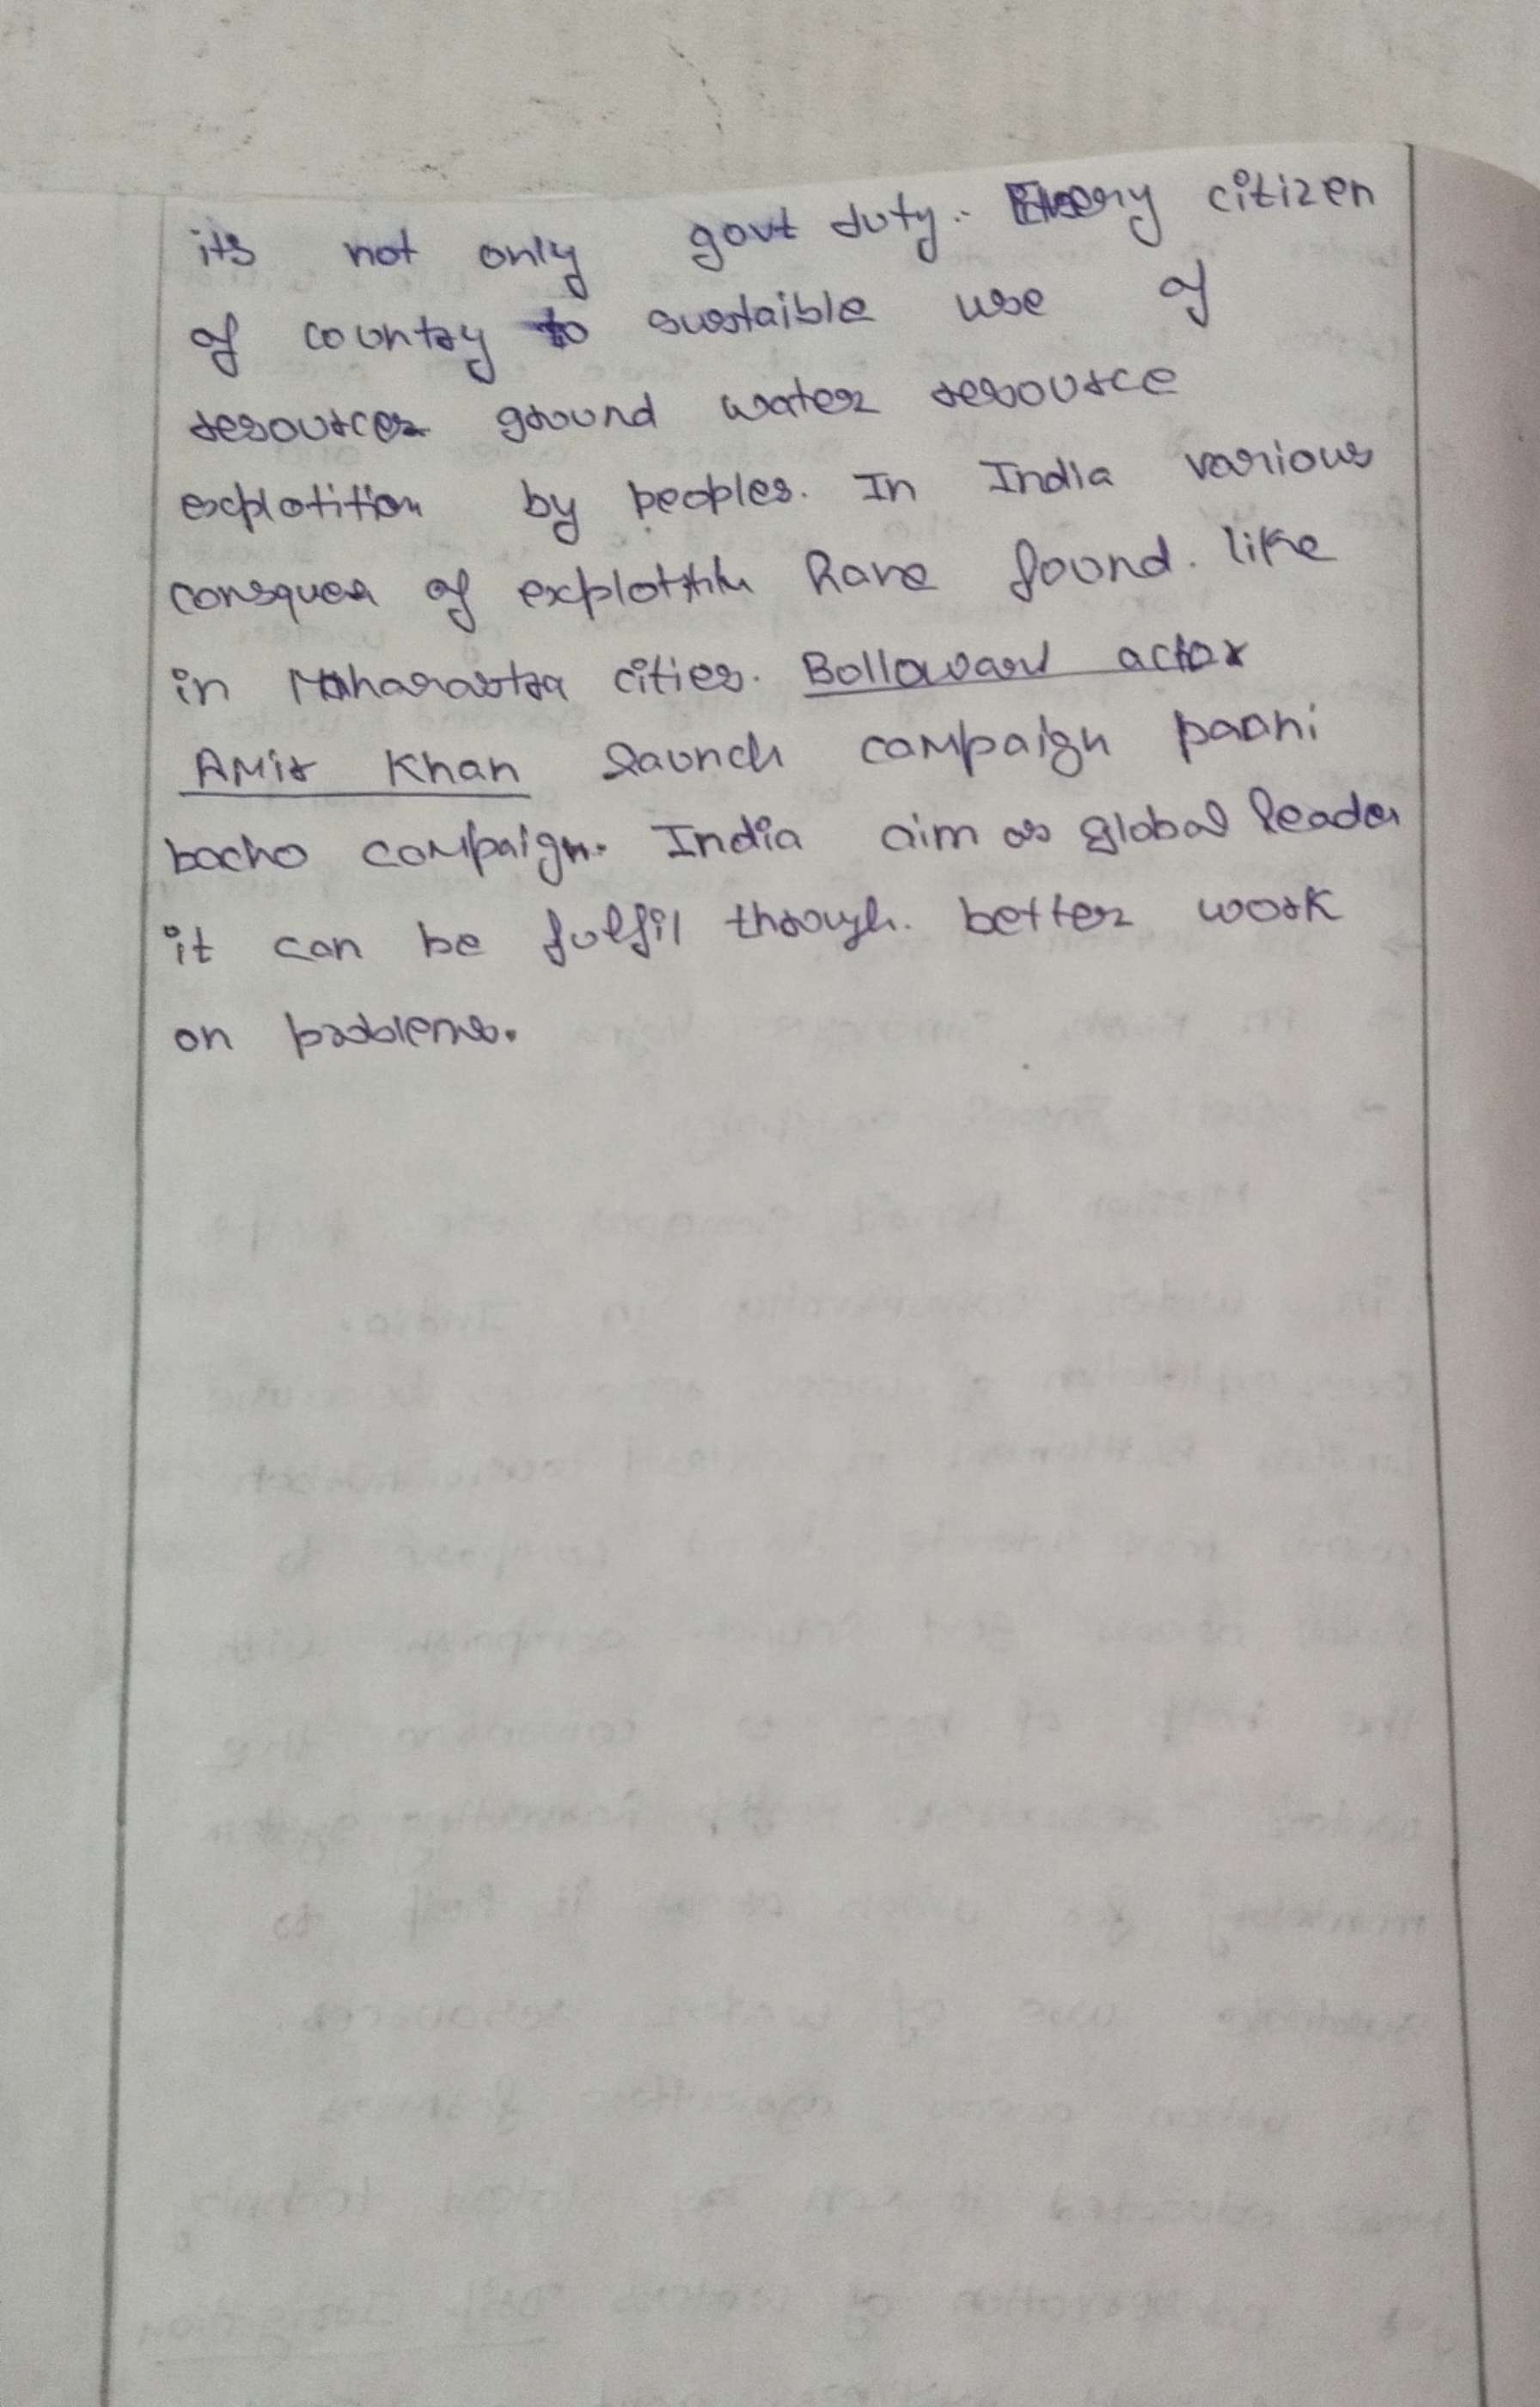 its not only govt duty. Every citizen
of country to sustaible use of
resources ground water resource
explotition by peoples. In India various
consques of explottitn have found. like
in Maharastra cities. Bolloward actor
Amir Khan launch campaign paani
bacho campaign. India aim as global leader
it can be fulfil through. better work
on problems.